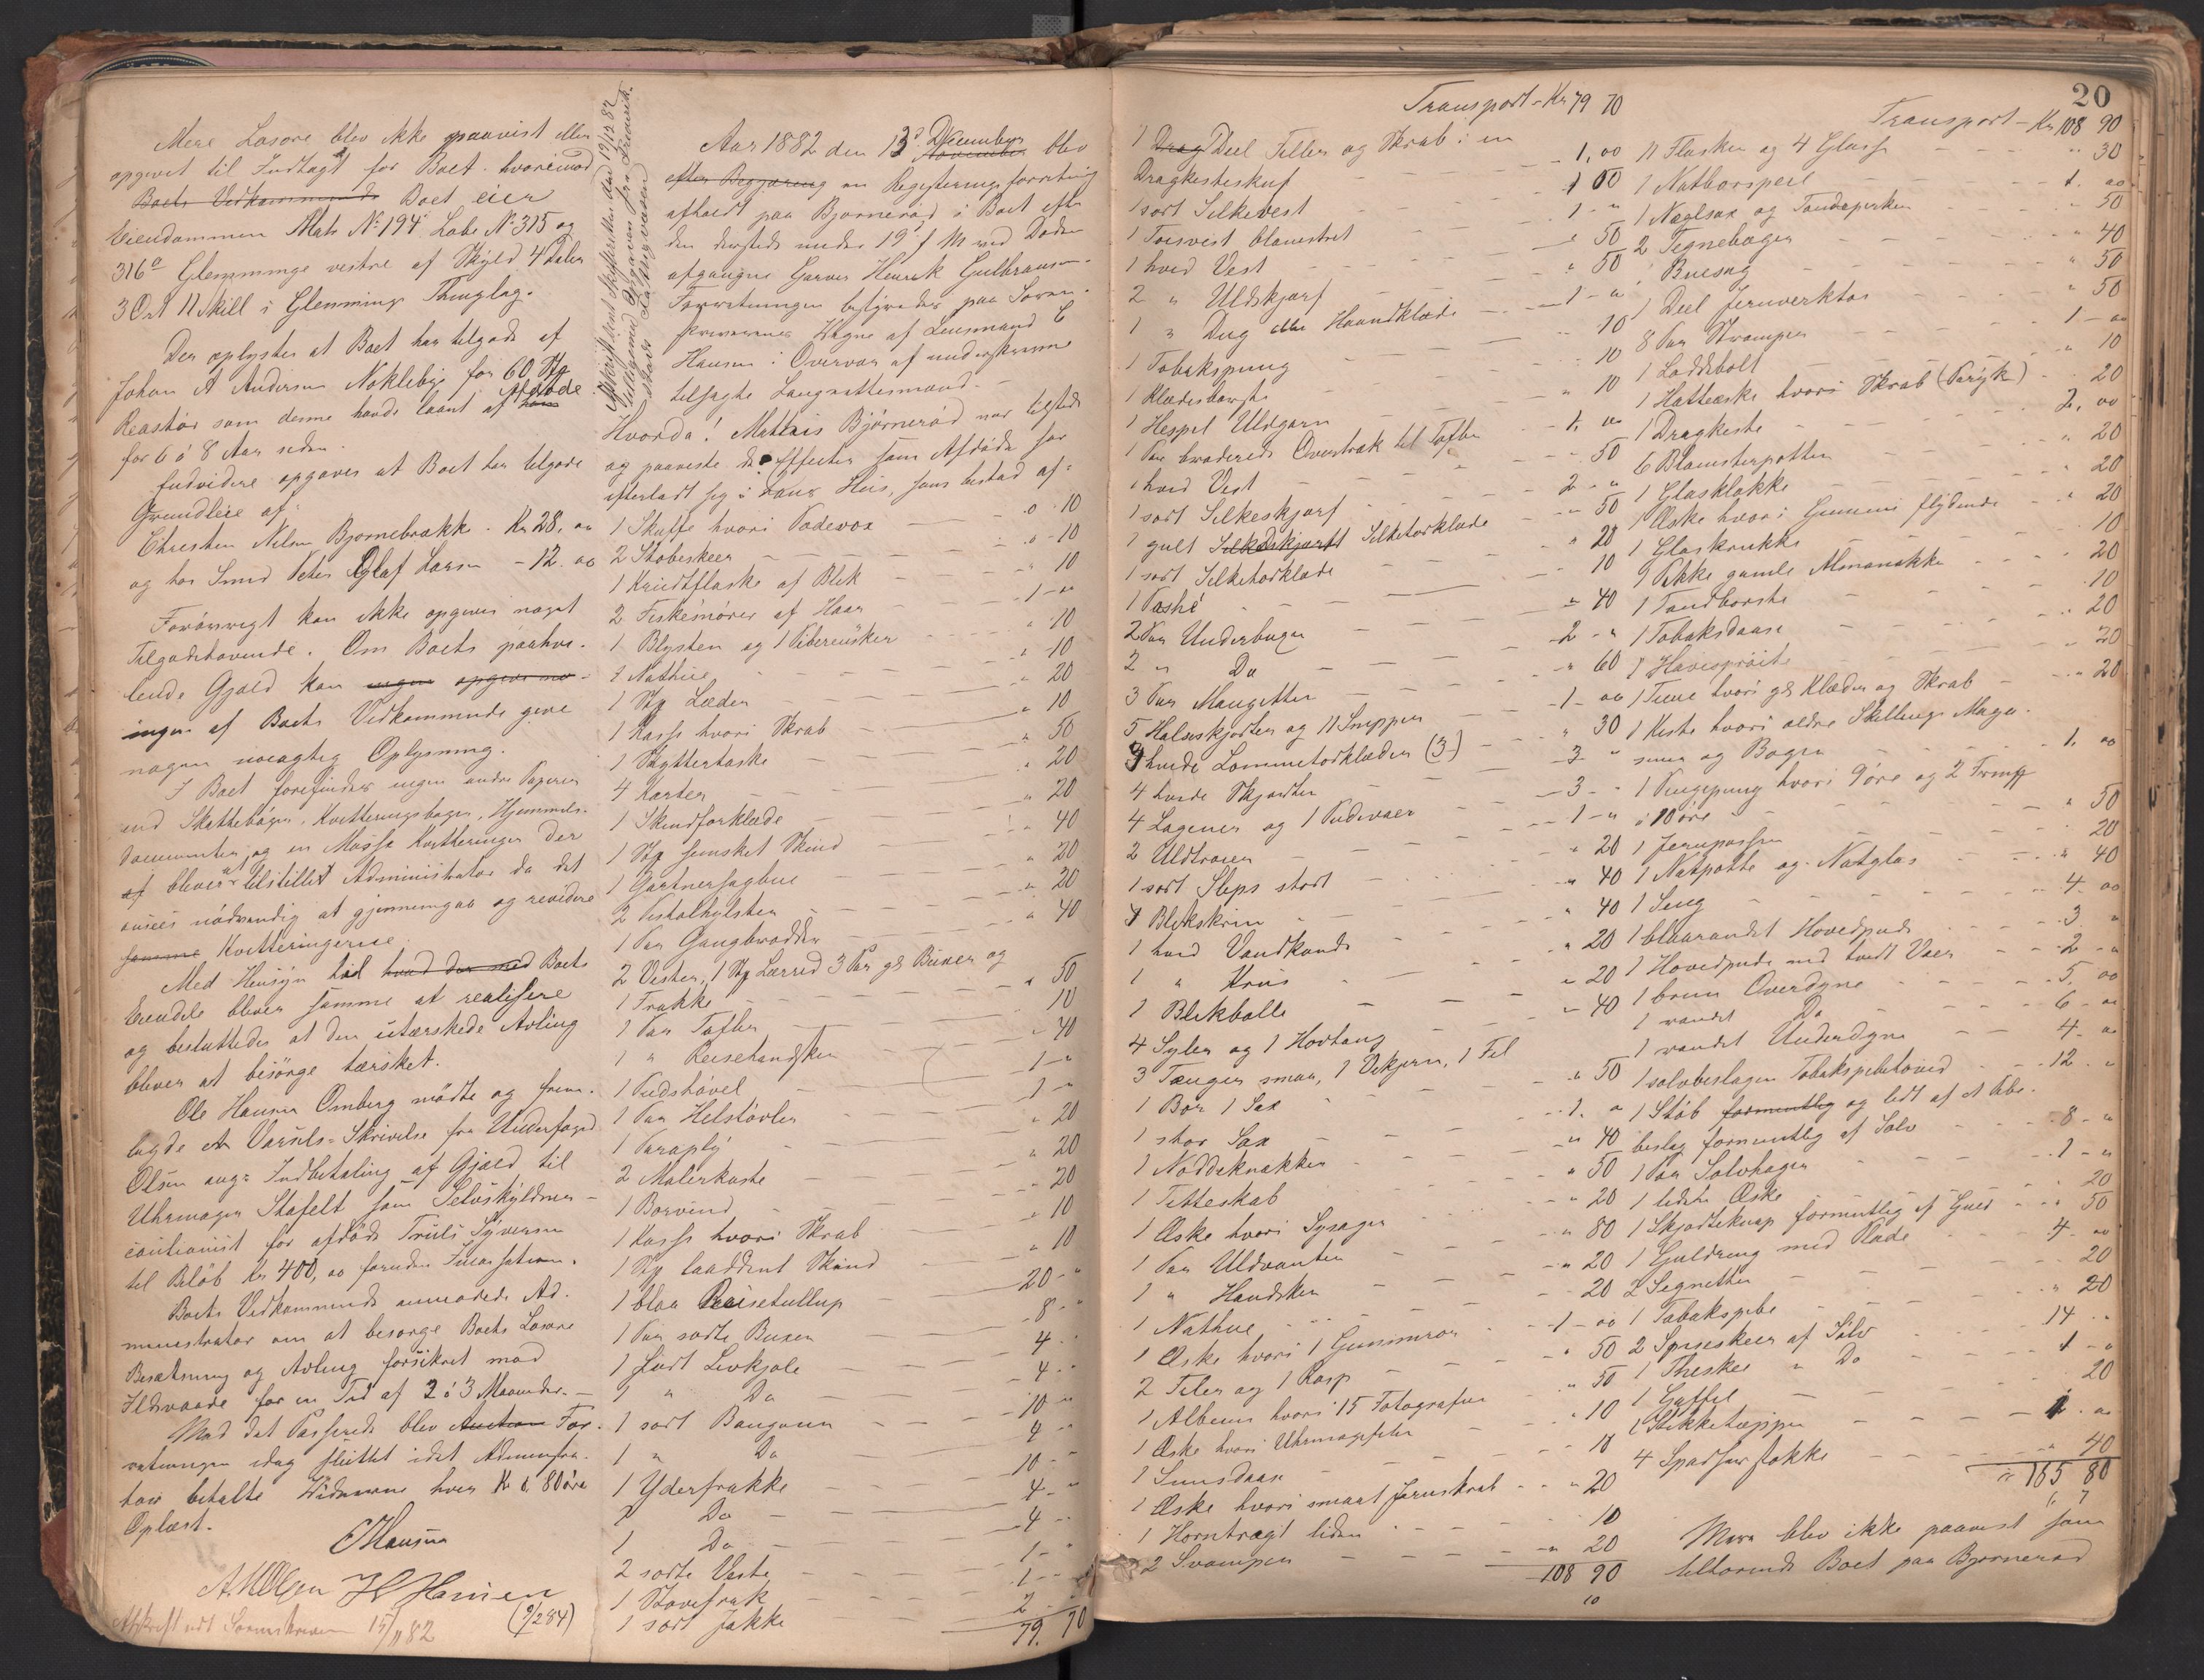 Mere Løsøre blev ikke paavist eller
opgivet til Indtægt for Boet. hvorimod
Boets Vedkommende Boet eier
Eiendommen Mats No 194 Løbe No 315 og
316a Glemminge vestre af Skyld 4 Daler
3 Ort 11 Skill i Glemminge Thinglag.
Der oplystes at Boet har tilgode af
Johan A Andersen Nøkleby for 60 Stk
som denne havde laant af Afdøde
for 6 à 8 Aar siden.
Endvidere opgaves at Boet har tilgode
Grundleie af:
Christen Nilsen Bjørnebrække. Kr 28, oo
og hos Smed Peter Olaf Larsen - 12. oo
Forøvrigt kan ikke opgives noget
Tilgodehavende. Om Boets paahvi-
lende Gjæld kan ingen opgives no-
ingen af Boets Vedkommende give
nogen nøiagtig Oplysning.
I Boet forefindes ingen andre Papirer
end Skattebøger, Kvitteringsbøger, Hjemmels-
documenter og en Masse Kvitteringer der
af blever tilstillet Administrator da det
ansees nødvendig at gjennemgaa og revidere
samme Kvitteringerne.
Med Hensyn til hvad der med Boets
Eiendele bliver samme at realisere
og besluttedes at den utærskede Avling
bliver at besørge tærsket.
Ole Hansen Omberg mødte og frem-
lagde et Varsels-Skrivelse fra Underfoged
Olsen ang: Indbetaling af Gjæld til
Uhrmager Stafelt som Selvskyldner-
cautionist for afdøde Truls Syversen
til Beløb Kr 400, oo foruden Incassation.
Boets Vedkommende anmodede Ad-
ministrator om at besørge Boets Løsøre
Besætning og Avling forsikret mod
Ildsvaade for en Tid af 2 à 3 Maaneder.-
Med det Passerede blev Auction For-
retningen idag sluttet idet Administra-
tor betalte Vidnerne hver Kr 0, 80 øre
Oplæst.
C Hansen
A. M Olsen H Hansen
Afskrift udt Sorenskriveren 15/11 82
(9/284)
Afskrift sendt Skifteretten den 19/12 82
Aar 1882 den 13de Decembr November blev
efter Begjæring en Registreringsforretning
afholdt paa Bjørnerød i Boet efter
den dersteds under 19' f M ved Døden
afgangne Garver Henrik Gulbransen.
Forretningen bestyredes paa Soren-
skriverens Vegne af Lensmand C
Hansen i Overvær af underskrevne
tilsagte Laugrettesmænd.-
Hvorda! Mathias Bjørnerød var tilstede
og paaviste de Effecter som Afdøde har
efterladt sig i hans Hus, som bestod af:
1 Skuffe hvori Podevox 0 . 10
2 Støbeskeer 0 - 10
1 Krudtflaske af Blik " 10
2 Fiskesnører af Haar 1 - oo
1 Blysten og 1 Piberensker " 10
1 Nathue " 10
1 Stk Læder " 20
1 Kasse hvori Skrab " 10
1 Skyttertaske " 50
4 Karter " 20
1 Skindforklæde " 20
1 Stk semsket Skind " 40
1 Gartnersagbue " 20
2 Pistolhylster " 20
1 Par Gangbrodder " 40
2 Vester, 1 Stk Lærred 3 Par gl Buxer og
1 Frakke " 50
1 Par Tøfler 10
1 " Reisehandsker " 40
1 Pudshøvel 1 - "
1 Par Helstøvler 1 - "
1 Paraply " 20
2 Malerkoste " 20
1 Borvind " 20
1 Kasse hvori Skrab " 10
1 Stk laaddent Skind " 10
1 blaa Reisetullup 20 - "
1 Par sorte Buxer 8 - "
1 sort Livkjole 4 - "
1 " Do 4 - "
1 sort Bonjour 10 - "
1 " Do 4 "
1 Yderfrakke 10 - "
2 Do 4 - "
1 Do 4 "
2 sorte Veste 1 - "
1 Stovefrak 1 - "
1 sort Jakke 2 - "
79. 70
Transport - Kr 79 70
1 Drag Deel Filler og Skrab i en
Dragkisteskuf 1, oo
1 sort Silkevest 1 00
1 Toesvest blauestret 1 - "
1 hvid Vest " 50
2 " Uldskjærf " 50
1 " Dug eller Haandklæde 1 - "
1 Tobakspung " 10
1 Klædesbørste " 10
1 Hespel Uldgarn " 10
1 Par broderede Overtræk til Tøfler 1, oo
1 hvid Vest " 50
1 sort Silkeskjærf 2 - "
1 gult Silkeskjærf Silketørklæde " 50
1 sort Silketørklæde " 20
1 Vashé 10
2 Par Underbuxer " 40
2 " Do 2 - "
3 Par Mangetter " 60
5 Halsskjorter og 11 Snipper 1 - oo
9 hvide Lommetørklæder (3) " 30
4 hvide Skjorter 3 "
4 Lagener og 1 Pudevaer 3 - "
2 Uldtrøier 1 - "
1 sort Slips stort " 20
1 Blikskrin " 40
1 hvid Vandkande " 40
1 " Krus " 20
1 Blikbolle " 20
4 Syler og 1 Hovtang " 40
3 Tænger smaa, 1 Vekjern, 1 Fil
1 Bor 1 Sax " 50
1 stor Sax 1. "
1 Nøddeknækker " 40
1 Fitteskab " 50
1 Æske hvori Sysager " 20
1 Par Uldvanter " 80
1 " Handsker " 20
1 Nathue 20
1 Æske hvori 1 Gummirør 1 - oo
2 Filer og 1 Rasp " 50
1 Album hvori 15 Fotografier " 50
1 Æske hvori Uhrmagerfiler " 10
1 Snusdaase 10
1 Æske hvori smaat Jernskrab " 20
1 Horntragt liden 10
2 Svamper " 20
108 90
20
Transport - Kr 108 90
11 Flasker og 4 Glasse " 30
1 Natborspeil 1. oo
1 Neglsax og Tandaperker " 50
2 Tegnebøger " 40
1 Buesag " 50
1 Deel Jernverktøi " 50
8 Par Strømper 1 - oo
1 Loddebolt " 10
1 Hatteæske hvori Skrab (Paryk) 20
1 Dragkiste 2, oo
6 Blomsterpotter " 20
1 Glasklokke 20
1 Æske hvori Gummi flydende " 20
1 Glaskrukke 10
1 Pakke gamle Almanakke 20
1 Tandbørste 10
1 Tobaksdaase " 20
1 Havesprøite " 20
1 Tiene hvori gl Klæder og Skrab " 20
1 Kiste hvori ældre Skillings Maga-
siner og Bøger 1. oo
1 Pengepung hvori 9 øre og 2 Frmk
à 10 øre " 50
1 Jernpasser 20
1 Natpotte og Natglas " 40
1 Seng 4 - oo
1 blaarandet Hovedpude 3 "
1 Hovedpude med hvidt Vaer 2 - "
1 brun Overdyne 5, oo
1 randet Do 6 - "
1 randet Underdyne 4 - "
1 sølvbeslagen Tobakspibehoved 12 - "
1 Støb formentlig og lidt af et Pibe-
beslag formentlig af Sølv 8 - "
1 Par Sølvhager 1 - "
1 liden Æske 20
1 Skjorteknap formentlig af Guld " 50
1 Guldring med Plade 4 - oo
2 Segnetter 20
1 Tobakspibe " 20
2 Spiseskeer af Sølv 14 "
1 Theskee " Do 1 - "
1 Gaffel 20
1 Stikketæppe 1. oo
4 Spadserstokke " 40
" 165 80
Mere blev ikke paavist som
tilhørende Boet paa Bjørnerød